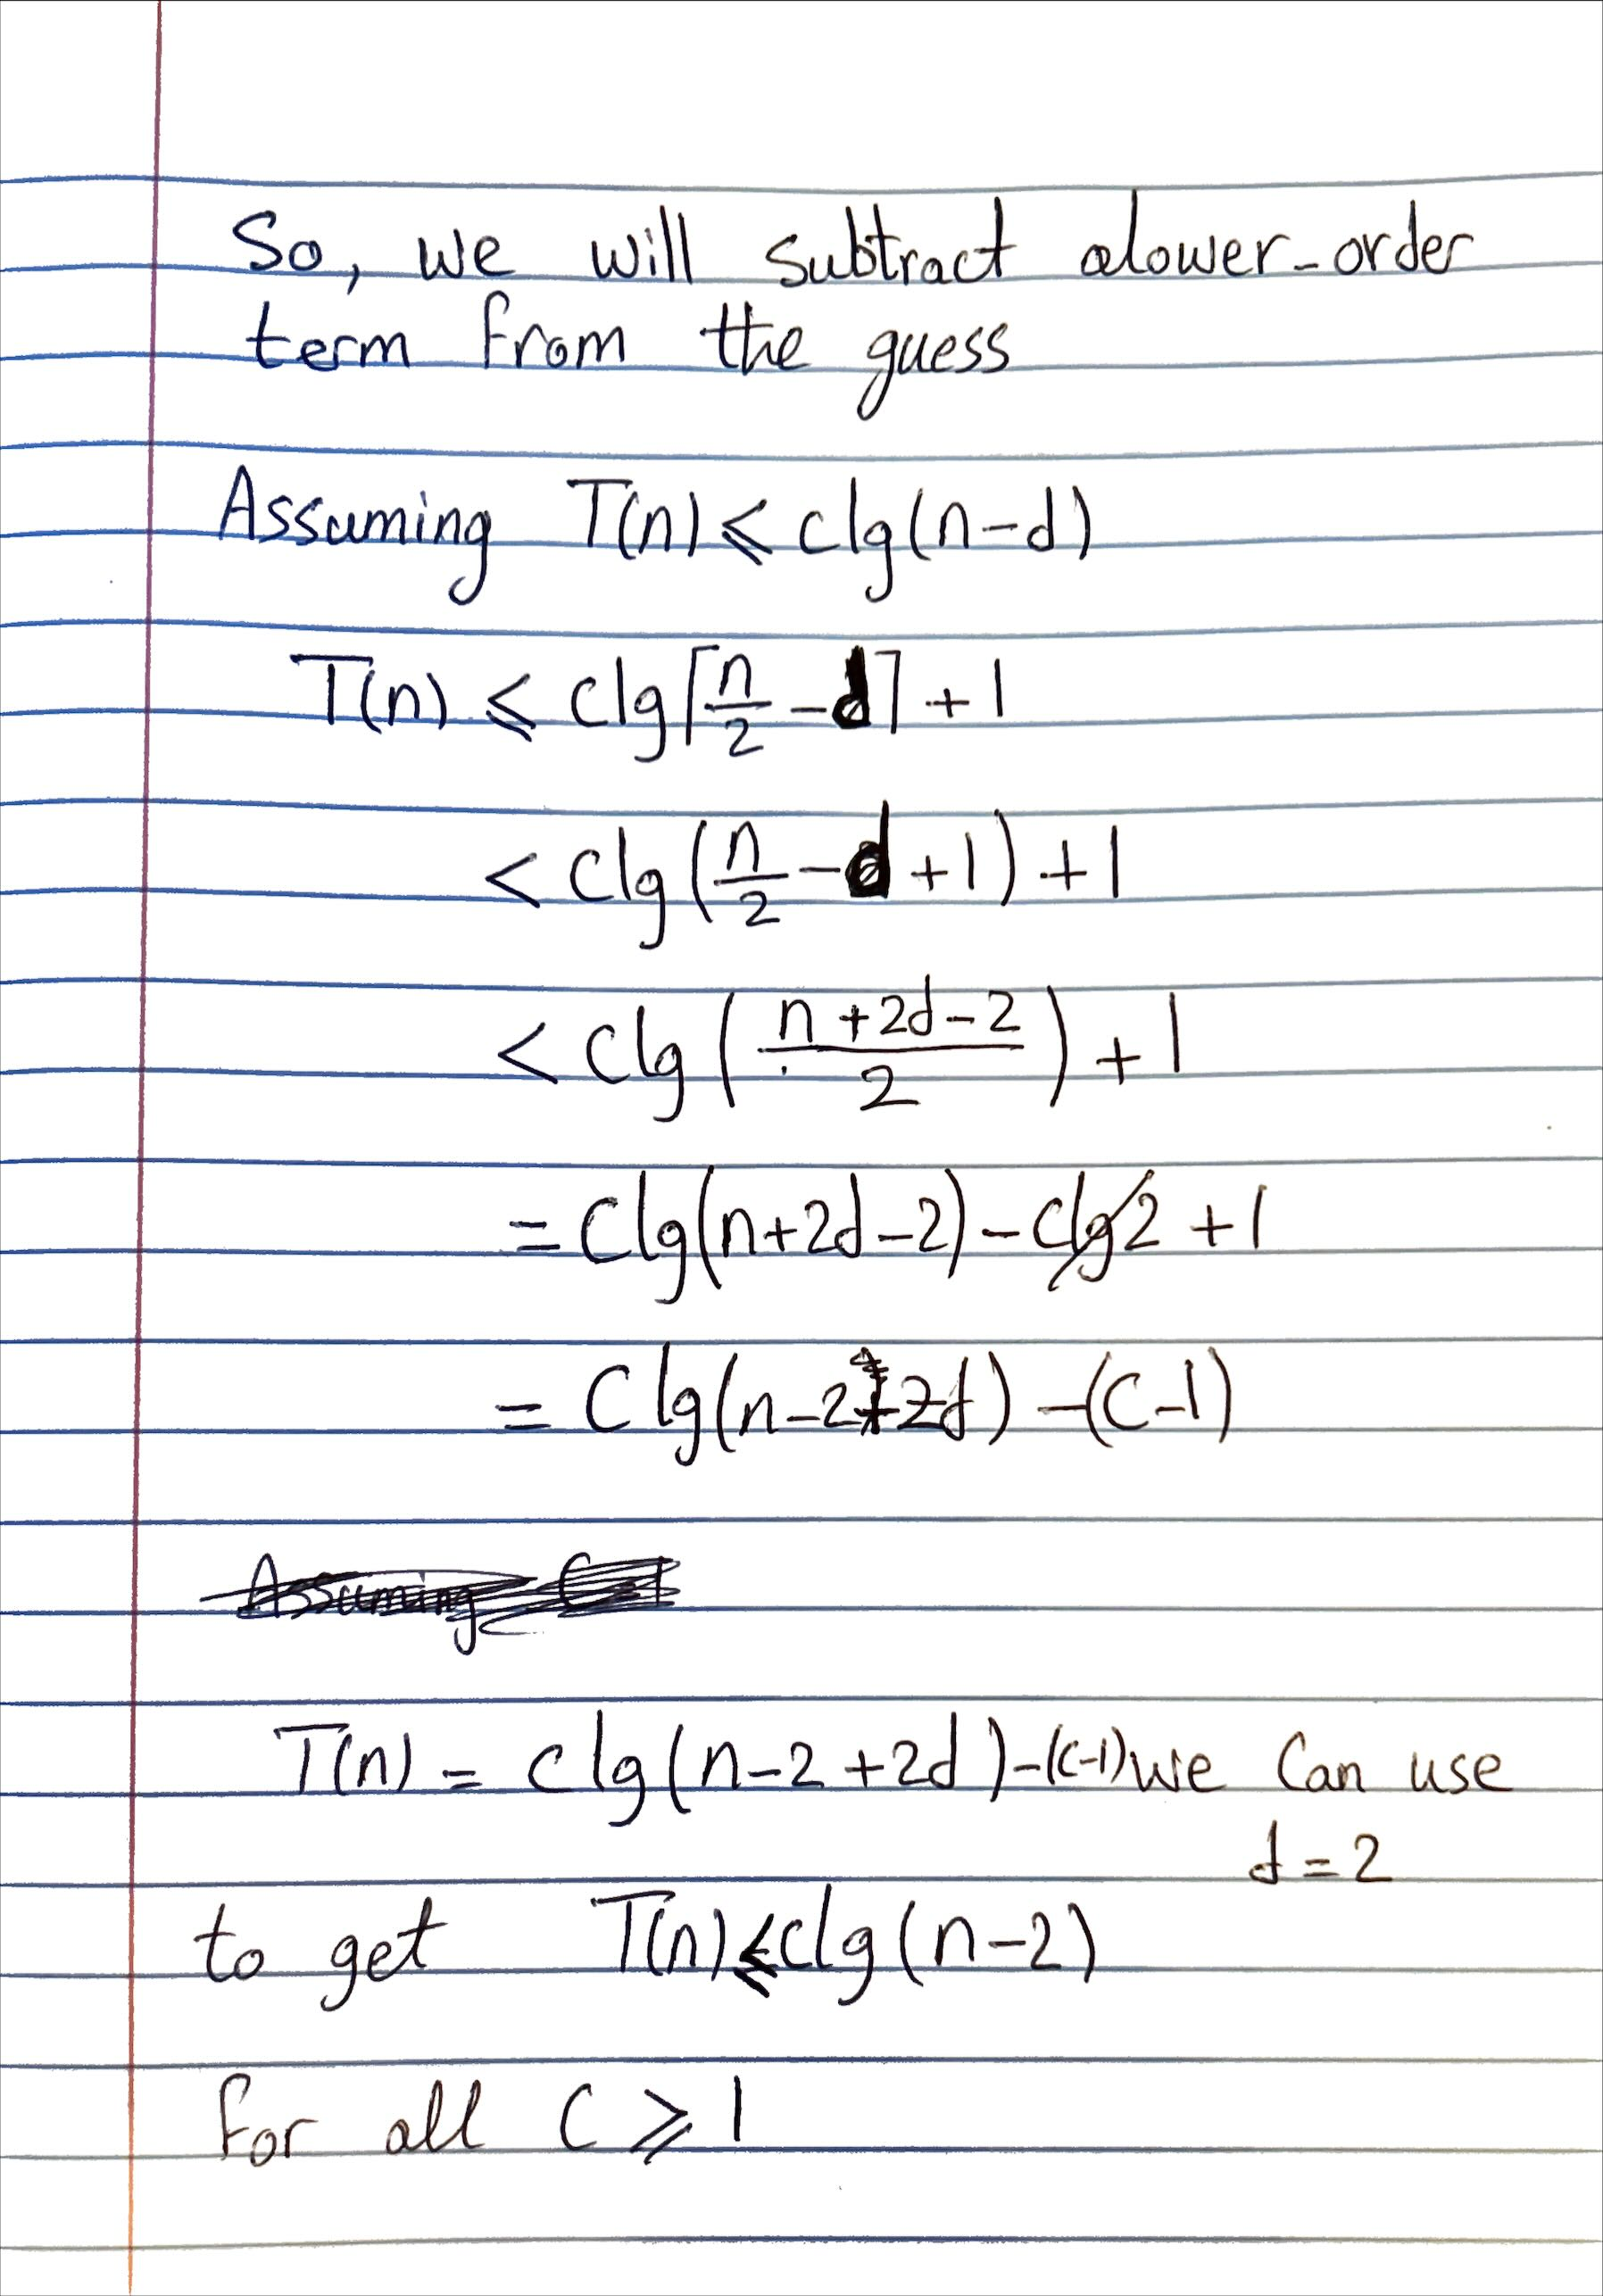 So, we will subtract a lower-order
term from the guess
Assuming T(n) ≤ clg(n-d)
T(n) ≤ clg⌈n/2 - d⌉ + 1
< clg(n/2 - d + 1) + 1
< clg((n + 2d - 2)/2) + 1
= clg(n+2d-2) - clg2 + 1
= clg(n-2+2d) - (c-1)
T(n) = clg(n-2+2d) - (c-1) we can use
d = 2
to get T(n) ≤ clg(n-2)
for all c ≥ 1